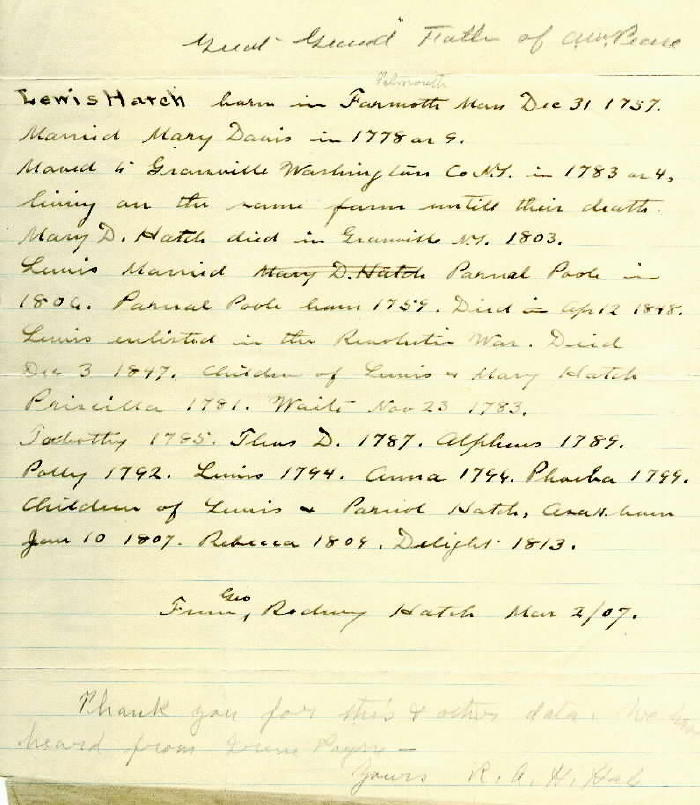 Great Grand Father of
Falmouth
Lewis Hatch born in Farmoth Mass Dec 31 1757.
Married Mary Davis in 1778 or 9.
Moved to Granville Washington Co N.Y. in 1783 or 4,
living on the same farm untill their death.
Mary D. Hatch died in Granville N.Y. 1803.
Lewis Married Mary D. Hatch Parnal Poole in
1806. Parnal Poole born 1759. Died in Apr 12 1848.
Lewis enlisted in the War. Died
Dec 3 1847. Children of Lewis & Mary Hatch
Priscilla 1781. Nov 23 1783.
1785. Thos D. 1787. Alpheus 1789.
Polly 1792. Lewis 1794. Anna 1796. Phoeba 1799.
Children of Lewis & Hatch, born
Jan 10 1807. Rebecca 1809. Delight 1813.
Geo
From, Rodney Hatch Mar 2/07.
Thank you for this & other data. We
heard from
Yours R. A. H.